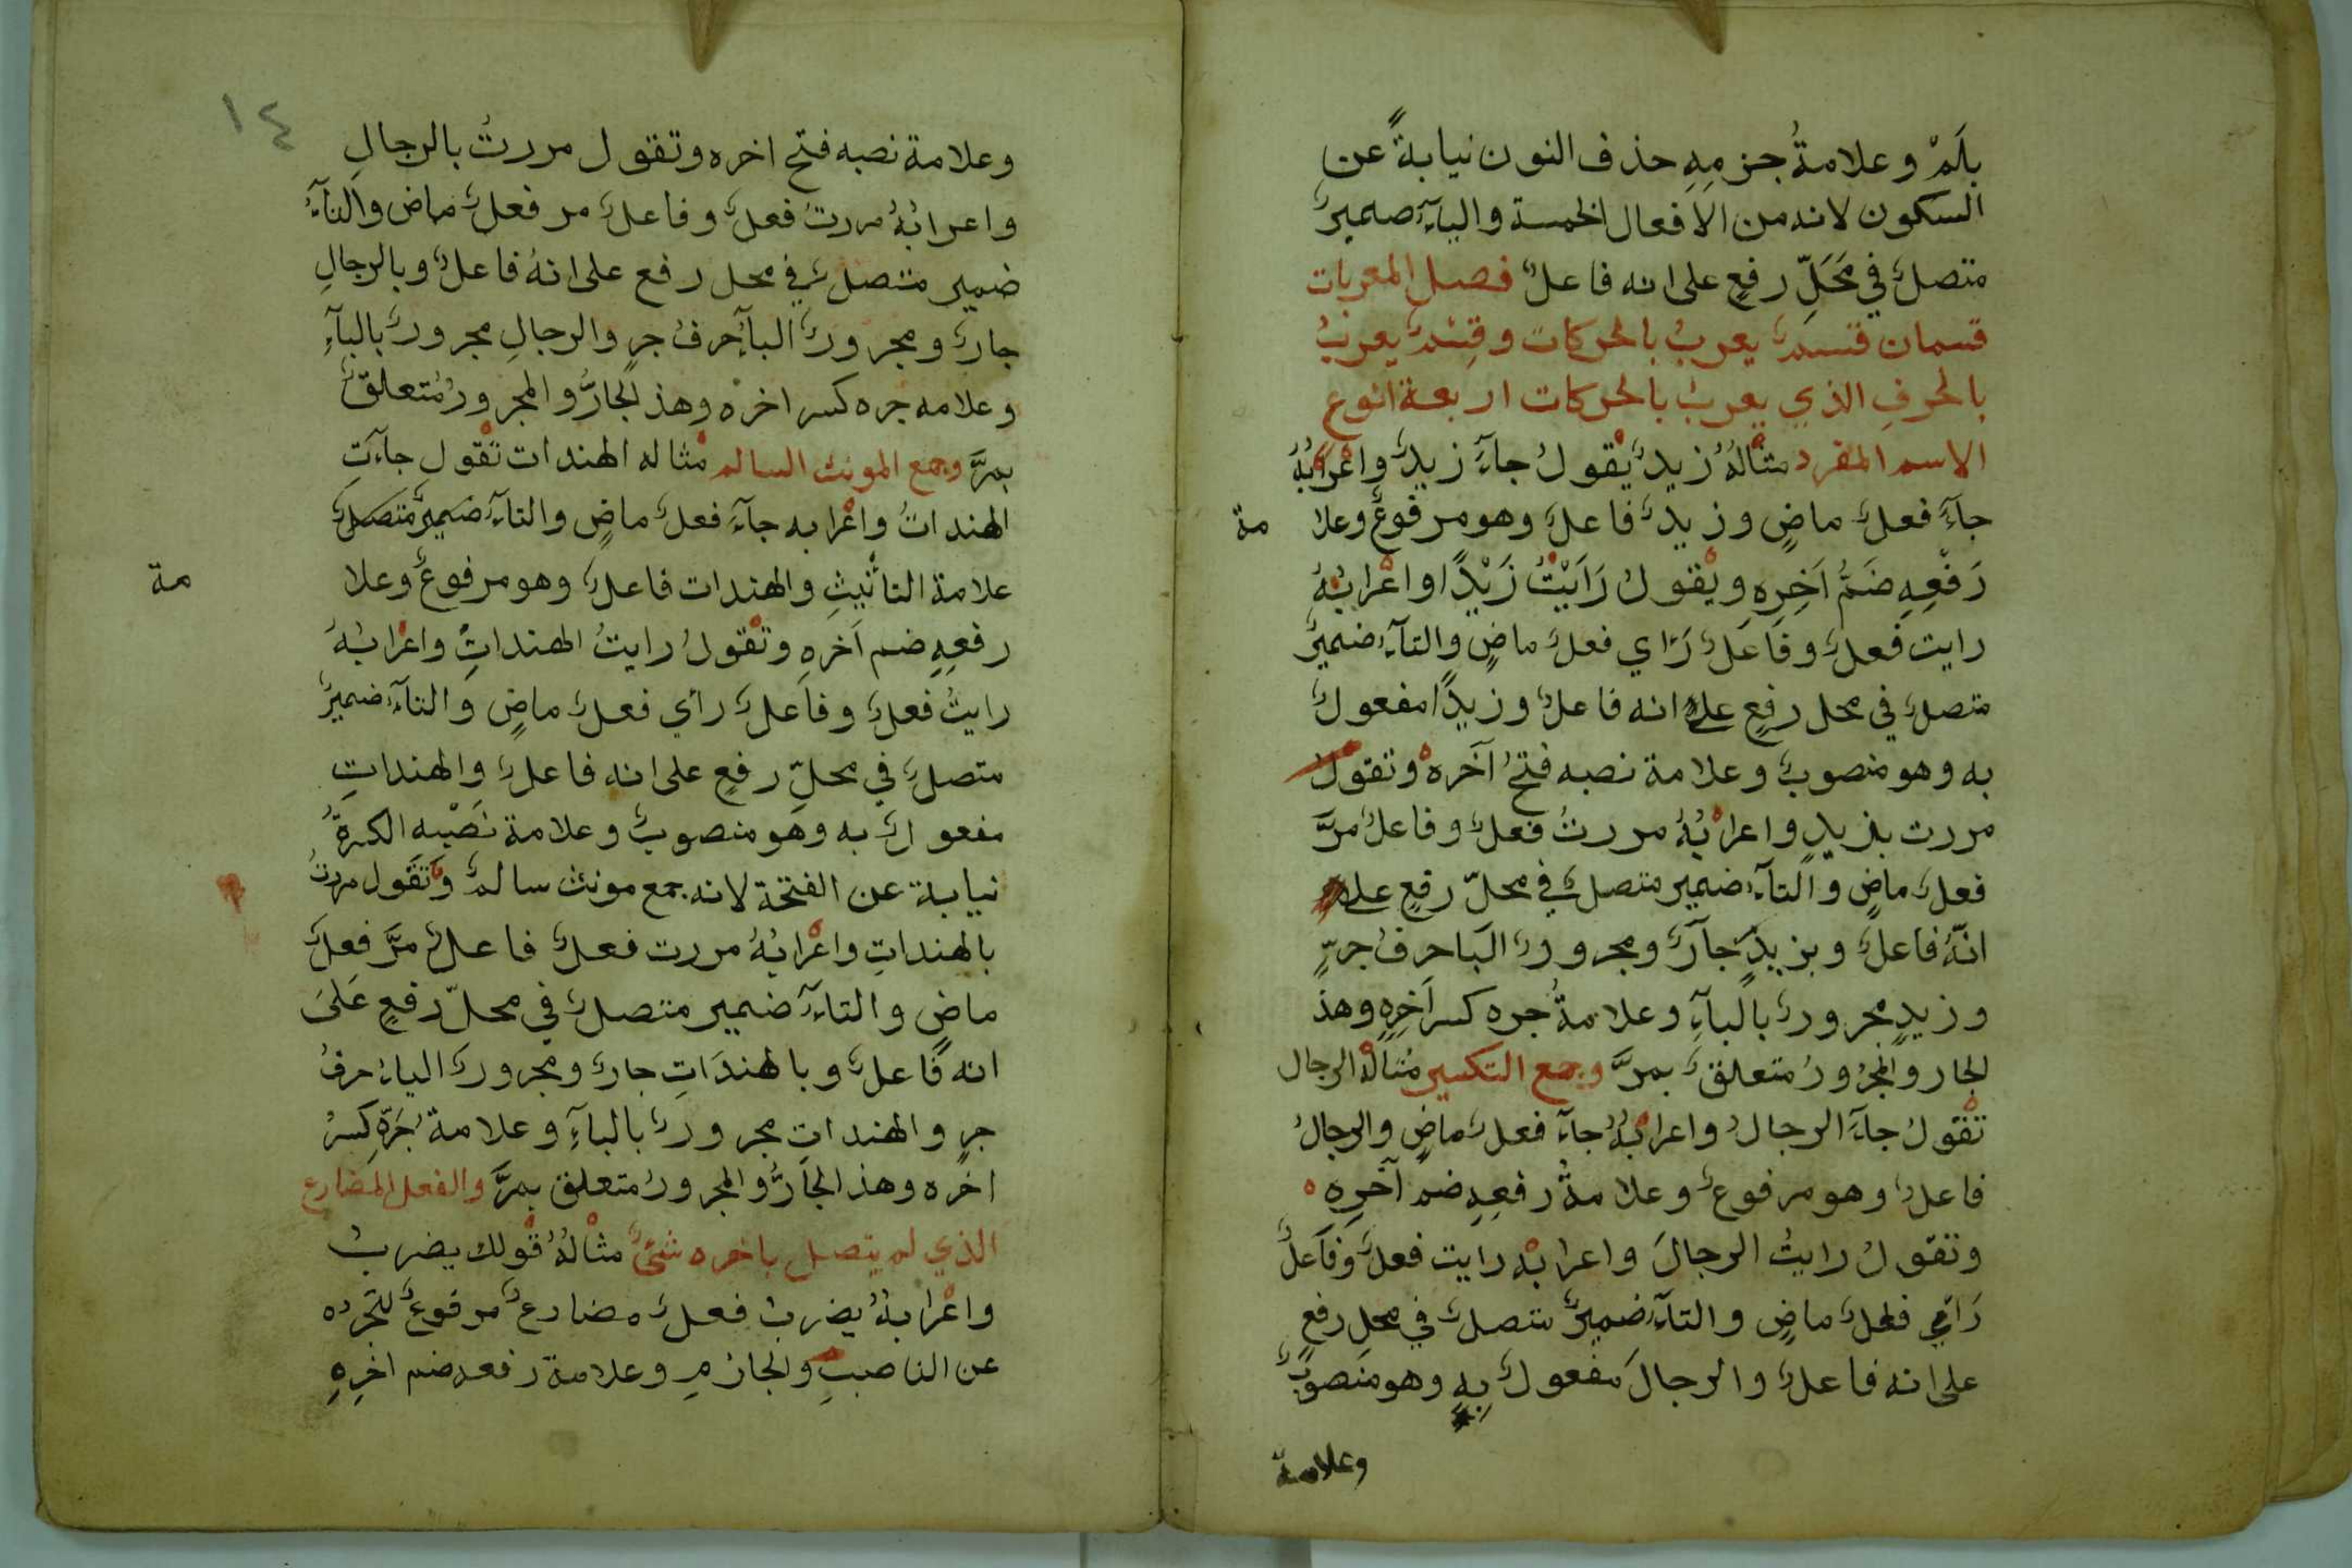 بلَمْ وعلامةُ جزمِهِ حذف النون نيابةً عن
السكون لانه من الافعال الخمسة واليآء ضميرٌ
متصلٌ في مَحَلِّ رفعٍ على انه فاعلٌ فصل المعربات
قسمان قسمٌ يعربُ بالحركات وقِسْمٌ يعربُ
بالحرفِ الذي يعربُ بالحركات اربعة انوع
الاسم المفرد مثالهُ زيدٌ يقولُ جآءَ زيدٌ واعْرابُهُ
جآءَ فعلٌ ماضٍ وزيدٌ فاعلٌ وهو مرفوعٌ وعلا مة
رَفْعِهِ ضَمُّ اَخِرِهِ ويقولُ رَاَيْتُ زَيْدًا واعْرابُهُ
رايت فعلٌ وفاعلٌ رَاي فعلٌ ماضٍ والتآء ضميرٌ
متصلٌ في محل رفعٍ على انه فاعلٌ وزيدًا مفعولٌ
به وهو منصوبٌ وعلامة نصبه فتحُ آخره وتقول
مررت بزيدٍ واعرابُهُ مررتُ فعلٌ وفاعلٌ مرَّ
فعلٌ ماضٍ والتآء ضمير متصلٌ في محلّ رفعٍ على
انّهُ فاعلٌ وبزيدٍ جآرٌ ومجرورٌ البا حرفُ جرٍّ
وزيدٍ مجرورٌ بالبآءِ وعلامةُ جره كسر اَخِرِهِ وهذ
لجار والمجْرورُ متعلقٌ بمرَّ وجمع التكسير مُثالهْ الرجال
تقولُ جآءَ الرجالُ واعرابُهُ جآءَ فعلٌ ماضٍ والرجالُ
فاعلٌ وهو مرفوعٌ وعلامةُ رفعِهِ ضم آخرِهِ
وتقولُ رايتُ الرجالَ واعرابْه رايت فعلٌ وفَاعلٌ
رَاي فعلٌ ماضٍ والتآء ضميرٌ متصلٌ في محلِ رفعٍ
على انه فاعلٌ والرجالَ مفعولٌ بِهِ وهو منصوبٌ
وعلامة
١٤
وعلامة نصبه فتح اخره وتقول مررتُ بالرجالِ
واعرابُهُ مررتُ فعلٌ وفاعلٌ مر فعلٌ ماض والتآءُ
ضمير متصلٌ في محل رفع على انهُ فاعلٌ وبالرجالِ
جارٌ ومجرورٌ البآءُ حرفُ جرٍ والرجالِ مجرورٌ بالبآءِ
وعلامه جره كسر اخره وهذ لجارُّ والمجرورُ مُتعلقٌ
بمرَّ وجمع المونث السالم مثاله الهندات تقول جآءتِ
الهنداتُ واعْرابه جآءَ فعلٌ ماضٍ والتآء ضميرٌ متصلٌ
علامة التأنيثِ والهندات فاعلٌ وهو مرفوعٌ وعلا مة
رفعِهِ ضم اَخرهِ وتقولُ رايتُ الهنداتِ واعْرابُهُ
رايتُ فعلٌ وفاَعلٌ رأي فعلٌ ماضٍ والتآء ضميرٌ
متصلٌ في محلِّ رفعٍ على انه فاعلٌ والهنداتِ
مفعولٌ به وهو منصوبٌ وعلامة نَصْبِه الكسرةُ
نيابة عن الفتحة لانه جمع مونث سالمٌ وتقول مررتُ
بالهنداتِ واعْرابُهُ مررت فعلٌ فاعلٌ مرَّ فعلٌ
ماضٍ والتآءَ ضمير متصلٌ في محلّ رفعٍ عَلىَ
انه فاعلٌ وبالهندَاتِ جارٌ ومجرورٌ الباءُ حرفُ
جرٍ والهنداتِ مجرورٌ بالبآءِ وعلامةُ جَرّهِ كسرُ
اخره وهذ الجارُّ والمجرورُ متعلق بمرَّ والفعل المضارع
الذي لم يتصل باخره شئٌ مثالهُ قولك يضربُ
واعْرابهُ يضربُ فعلٌ مضارعٌ مرفوعٌ لتجرده
عن الناصبِ والجازمِ وعلامة رفعه ضم اخِرِهِ